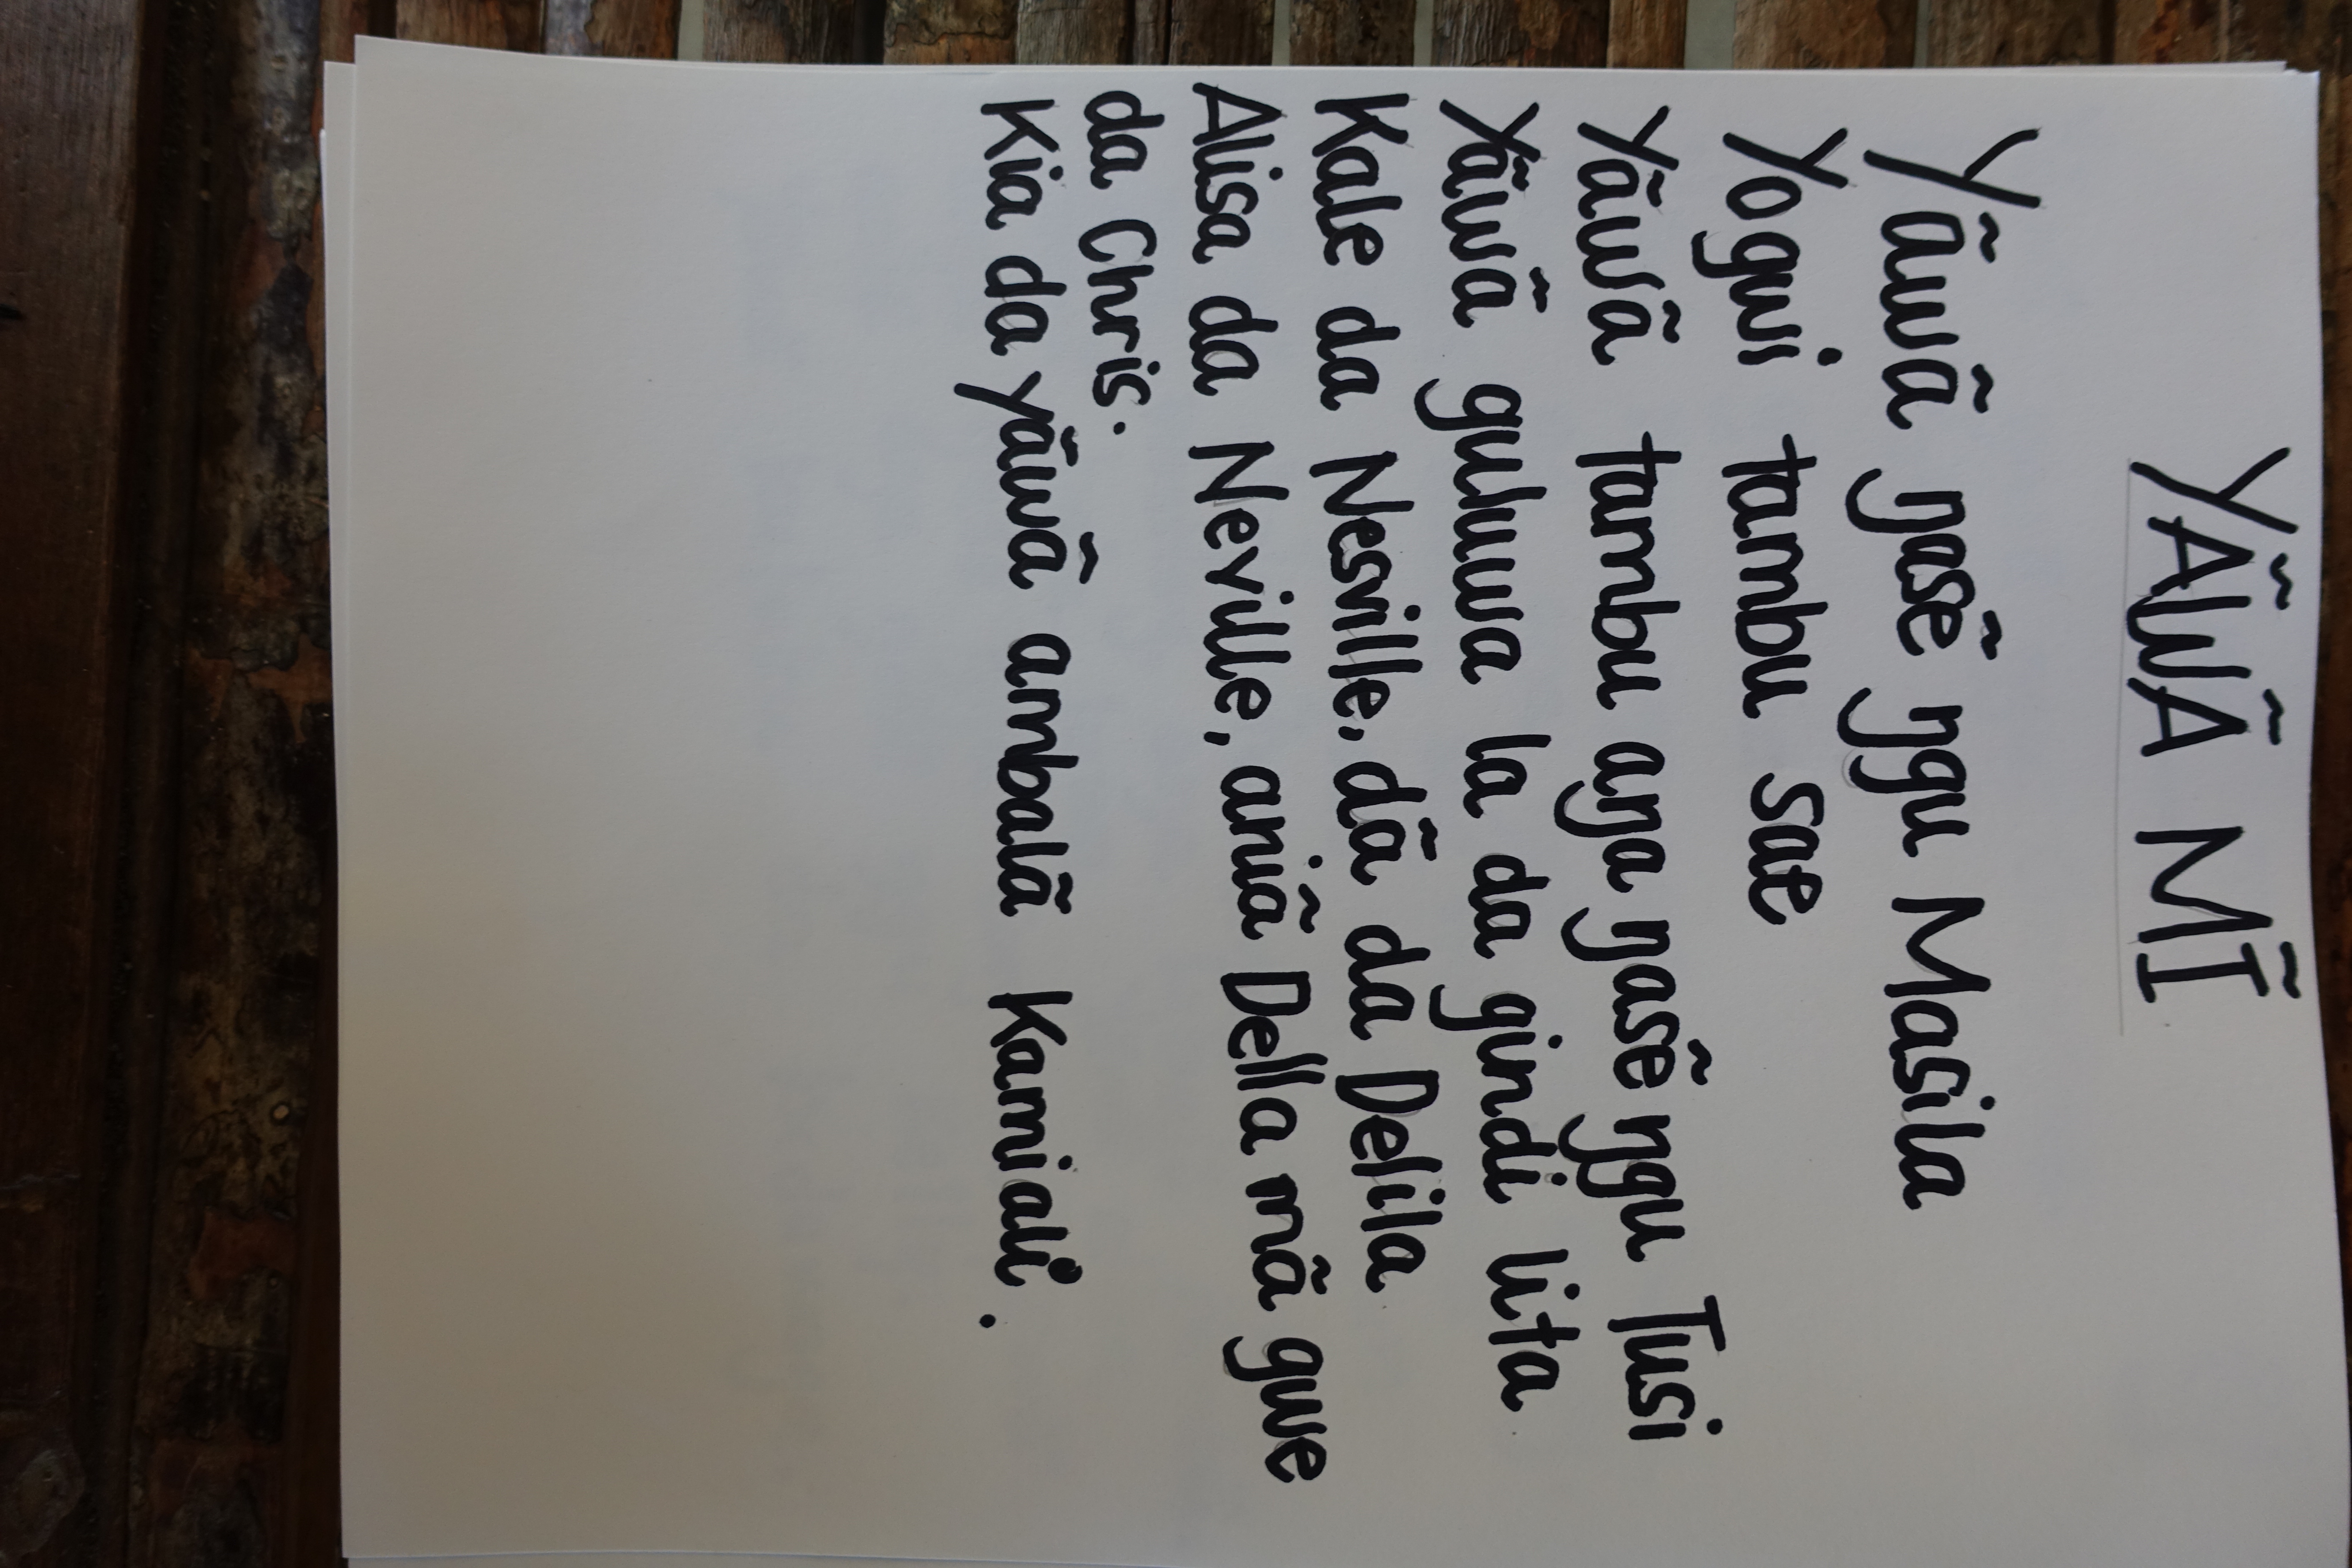 YÃWÃ MĨ
Yãwã ŋasẽ ŋgu Masila
Yogwi tambu sae
Yãwã tambu aŋa ŋasẽ ŋgu Tusi
Yãwã guluwa la da gindi lita
Kale da Nesville, dã da Delila
Alisa da Neville, aniã Della mã gwe
da Chris.
Kia da yãwã ambalã Kamiali.